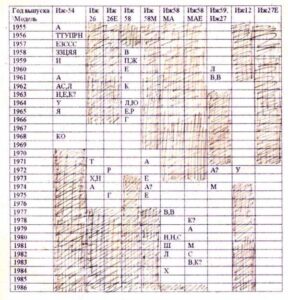 Год выпуска Иж-54 Иж Иж Иж Иж Иж58 Иж58 Иж59, Иж12 Иж27Е
Модель 26 26Е 58 58М МА МАЕ Иж27
1955 А
1956 ТТУПРН
1957 ЕЗССС
1958 ЗЩЯЯ В
1959 И П,Ж
1960 Е Л
1961 А В,В
1962 АС,Л К
1963 Н,Е,К?
1964 У Л,Ю
1965 Я Е,Р
1966 Г
1967
1968 КО
1969
1970
1971 Т А
1972 Р А? У
1973 Х,Н Е
1974 А А? М
1975 Г Е
1976
1977 В,В
1978 К?
1979 А
1980 Н,Н,С
1981 Ш М
1982 Л С
1983 В,К?
1984 Х
1985
1986